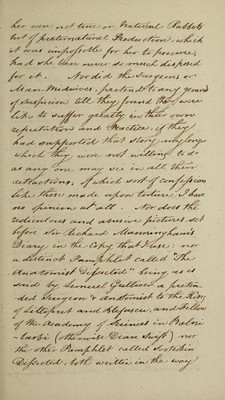 her were not true or Natural Rabbets
but of preternatural Production, which
it was impossible for her to procure,
had she been never so much disposed
for it. Nor did the Surgeons or
Man Midwives, pretend to any grand
of suspicion till they found they were
like to suffer greatly in their own
reputation and Practice, if they
had supported that Story any longer
which they were not willing to do
as any one may see in all their
retractions, of which sort of confessions
like those made upon torture I have
no opinion at all. Nor does the
rediculous and abusive pictures set
before Sir Richard Manningham's
Diary in the Copy that I use: nor
a distinct Pamphlet called "The
Anatomist Dissected" being as is
said by Lemuel Gulliver a preten
ded Surgeon & Anatomist to the King
of Lilliput and Blefuscu, and Fellow
of the Academy of Sciences in Balni
-barbi (otherwise Dean Swift) nor
the other Pamphlet called
Dissected, both written in the way